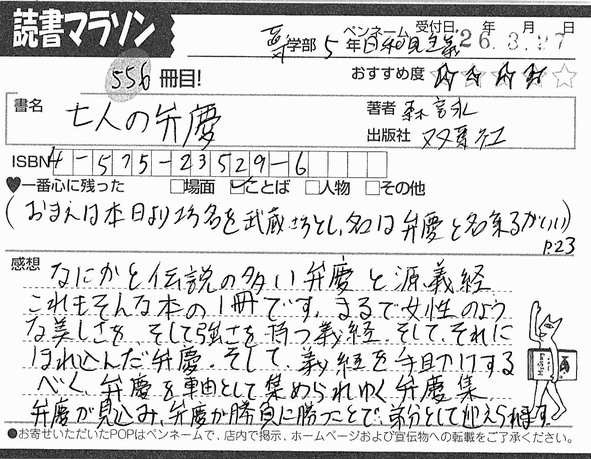 読書マラソン
学部 5年 ペンネーム 日和見主義 受付日 26年3月27日
556冊目! おすすめ度 ☆☆☆☆☆
書名 七人の弁慶
著者 森詠
出版社 双葉社
ISBN 4-575-23529-6
♥一番心に残った □場面 ☑ことば □人物 □その他
(おまえは本日より坊名を武蔵坊とし、名は弁慶と名乗るがいい)
p.23
感想
なにかと伝説の多い弁慶と源義経
これもそんな本の1冊です。まるで女性のよう
な美しさを、そして強さを持つ義経。そして、それに
ほれ込んだ弁慶。そして、義経を手助けする
べく、弁慶を軸として集められゆく弁慶集。
弁慶が見込み、弁慶が勝負に勝つことで、弟分として迎えられます。
●お寄せいただいたPOPはペンネームで、店内で掲示、ホームページおよび宣伝物への転載をご了承ください。